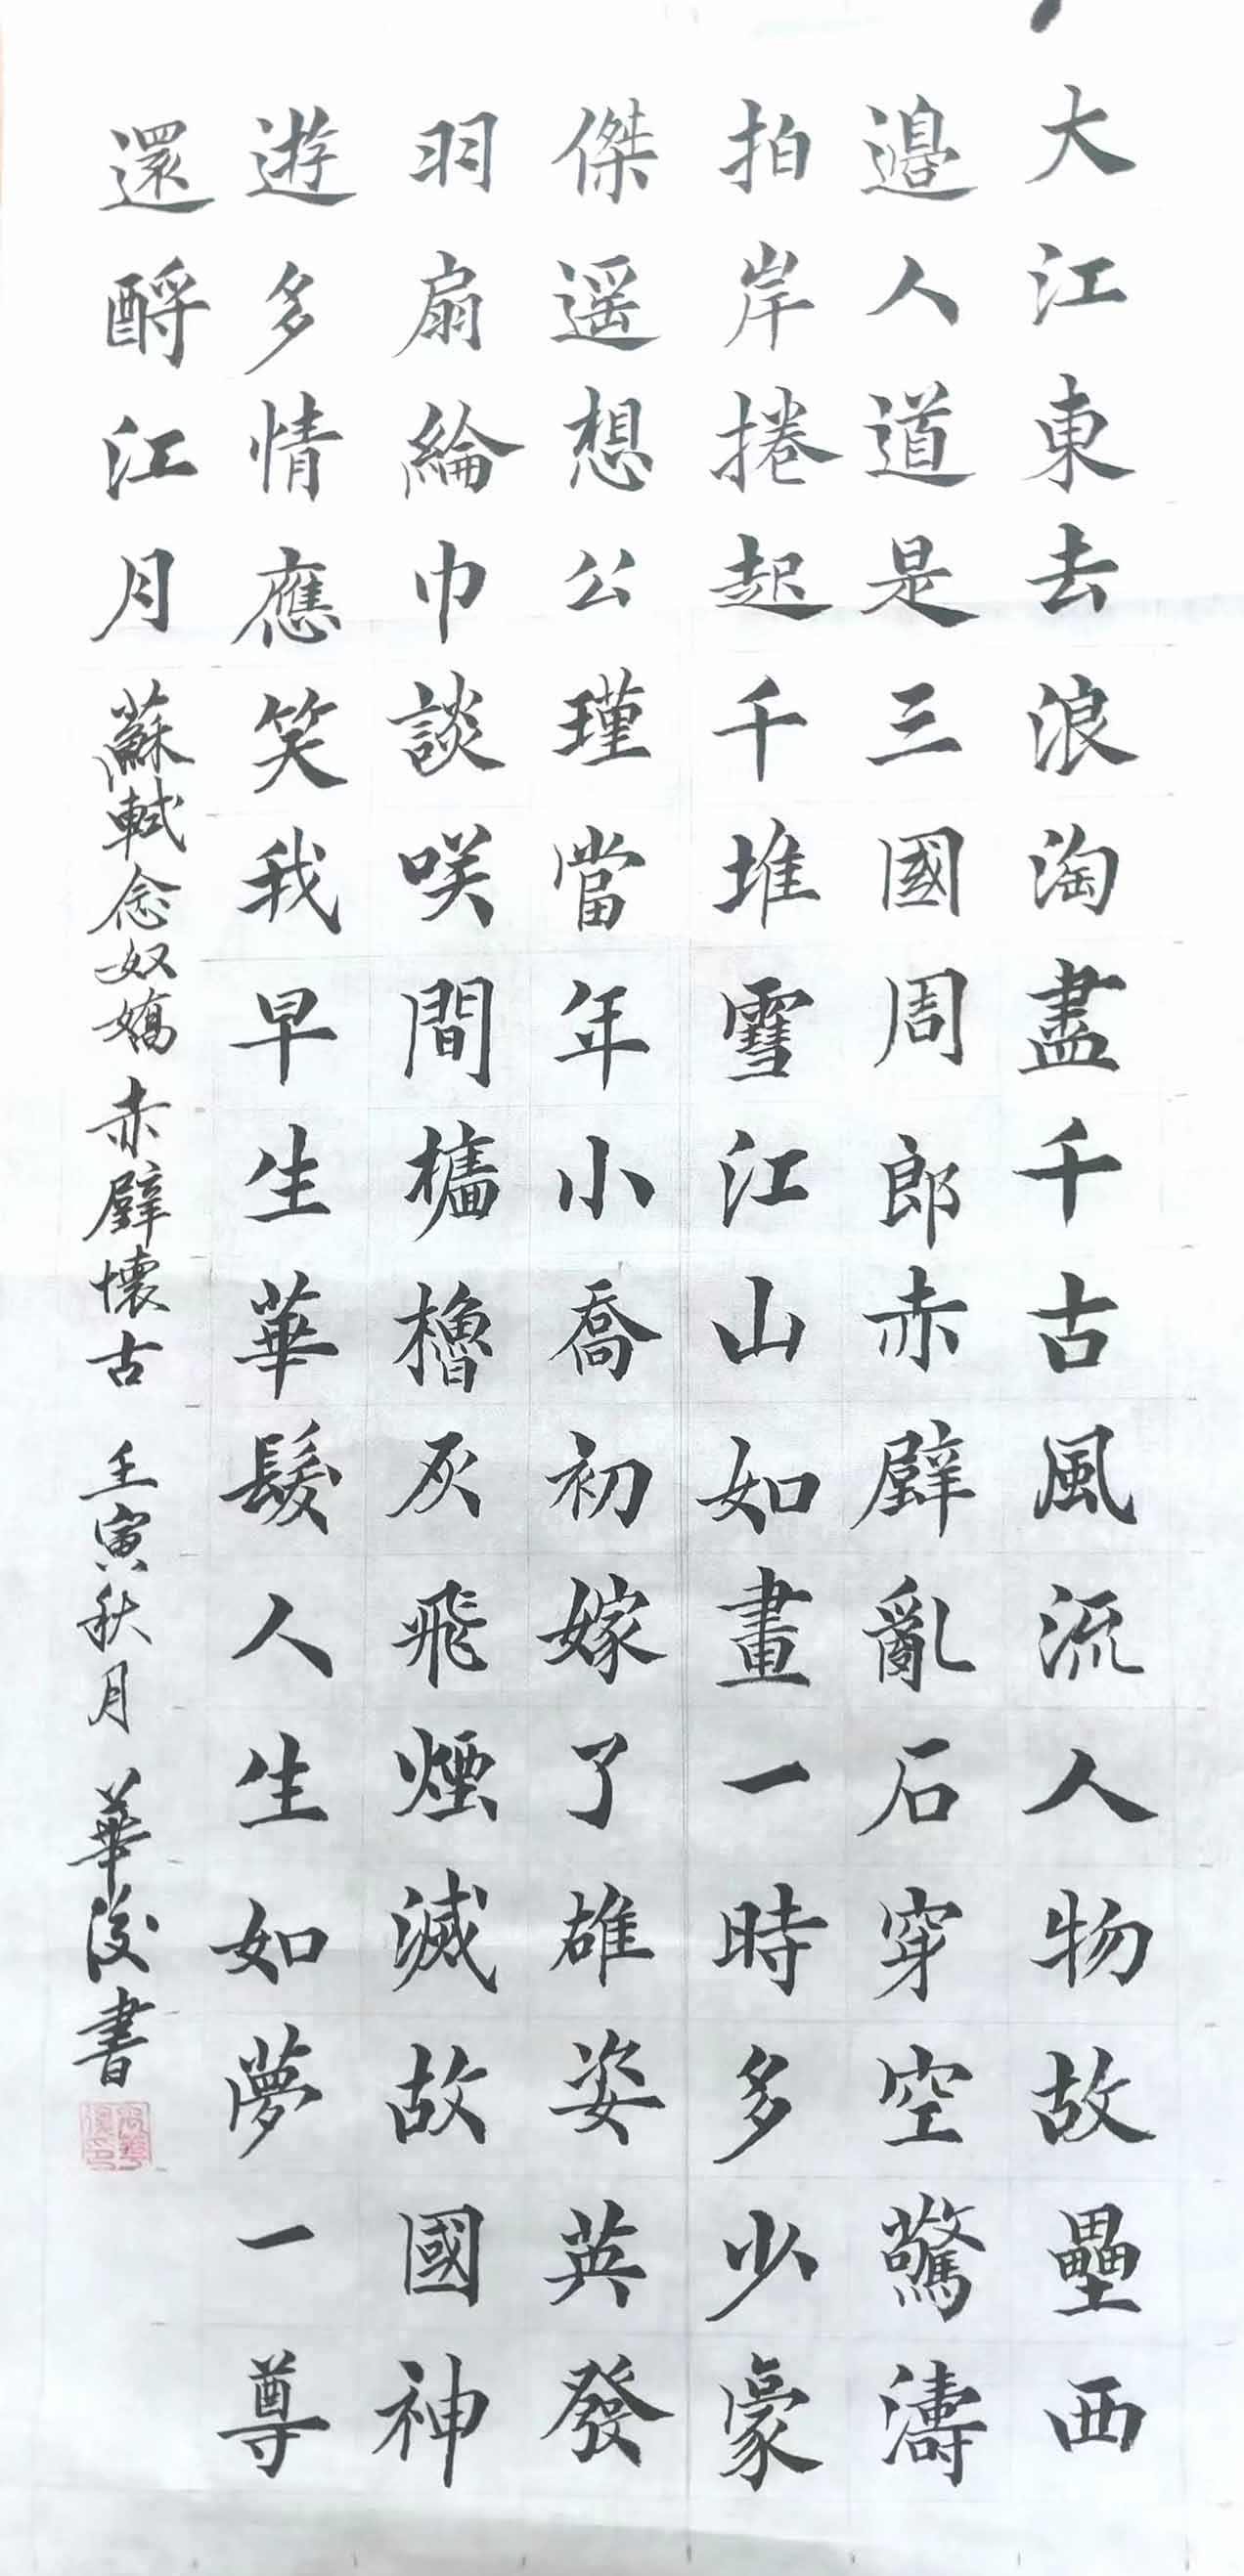 大江東去浪淘盡千古風流人物故壘西
邉人道是三國周郎赤壁亂石穿空驚濤
拍岸捲起千堆雪江山如畫一時多少豪
傑遥想公瑾當年小喬初嫁了雄姿英發
羽扇綸巾談咲間檣櫓灰飛煙滅故國神
遊多情應笑我早生華髮人生如夢一尊
還酹江月 蘇軾念奴嬌赤壁懷古 壬寅秋月 華浚書